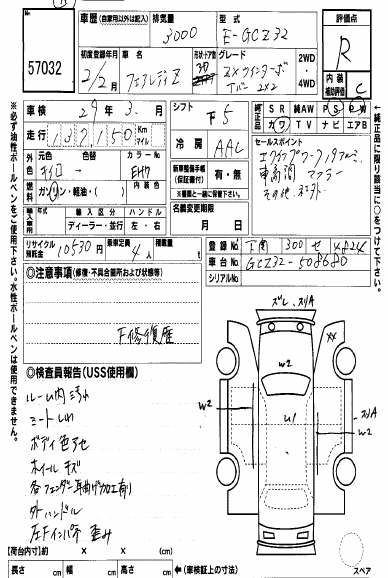 57032
車歴(自家用以外は記入)
排気量
型式
評価点
3000
E-GCZ32
R
初度登録年月
車名
形状・ドア数
グレード
2WD・4WD
2/2月
フェアレディZ
3D
ZXツインターボ
Tバー 2×2
内装
補助評価
C
車検
29年3.月
シフト
下5
純正品
SR
純AW
PS
PW
カワ
TV
ナビ
エアB
走行
132150
Km
マイル
冷房
AAC
セールスポイント
外色
元色
色替
カラーNo
EH7
内装色
燃料
ガソリン・軽油・( )
新車整備手帳
(保証書付)
有・無
車高調 マフラー
輸入車
年式
輸入区分
ハンドル
年
ディーラー・並行
左・右
名義変更期限
月 日
リサイクル預託金
10530円
乗車定員
4人
積載量
t
登録No
300
4824
車台No
GCZ32-508680
シリアルNo
◎注意事項(修復・不具合箇所および状態等)
下修復歴
◎検査員報告(USS使用欄)
ルーム内汚れ
シートしわ
ボディ色ヤセ
ホイールキズ
各フェンダー耳曲げ加工有り
外ハンドル
左Fインパネ 歪み
ズレ、スリA
××
w2
w2
U1
w2
スリA
スペア
[荷台内寸] × × (cm)
長さ cm
幅 cm
高さ cm
(車検証上の寸法)
※必ず油性ボールペンをご使用下さい。水性ボールペンは使用できません。
純正品に限り該当に○をつけて下さい。